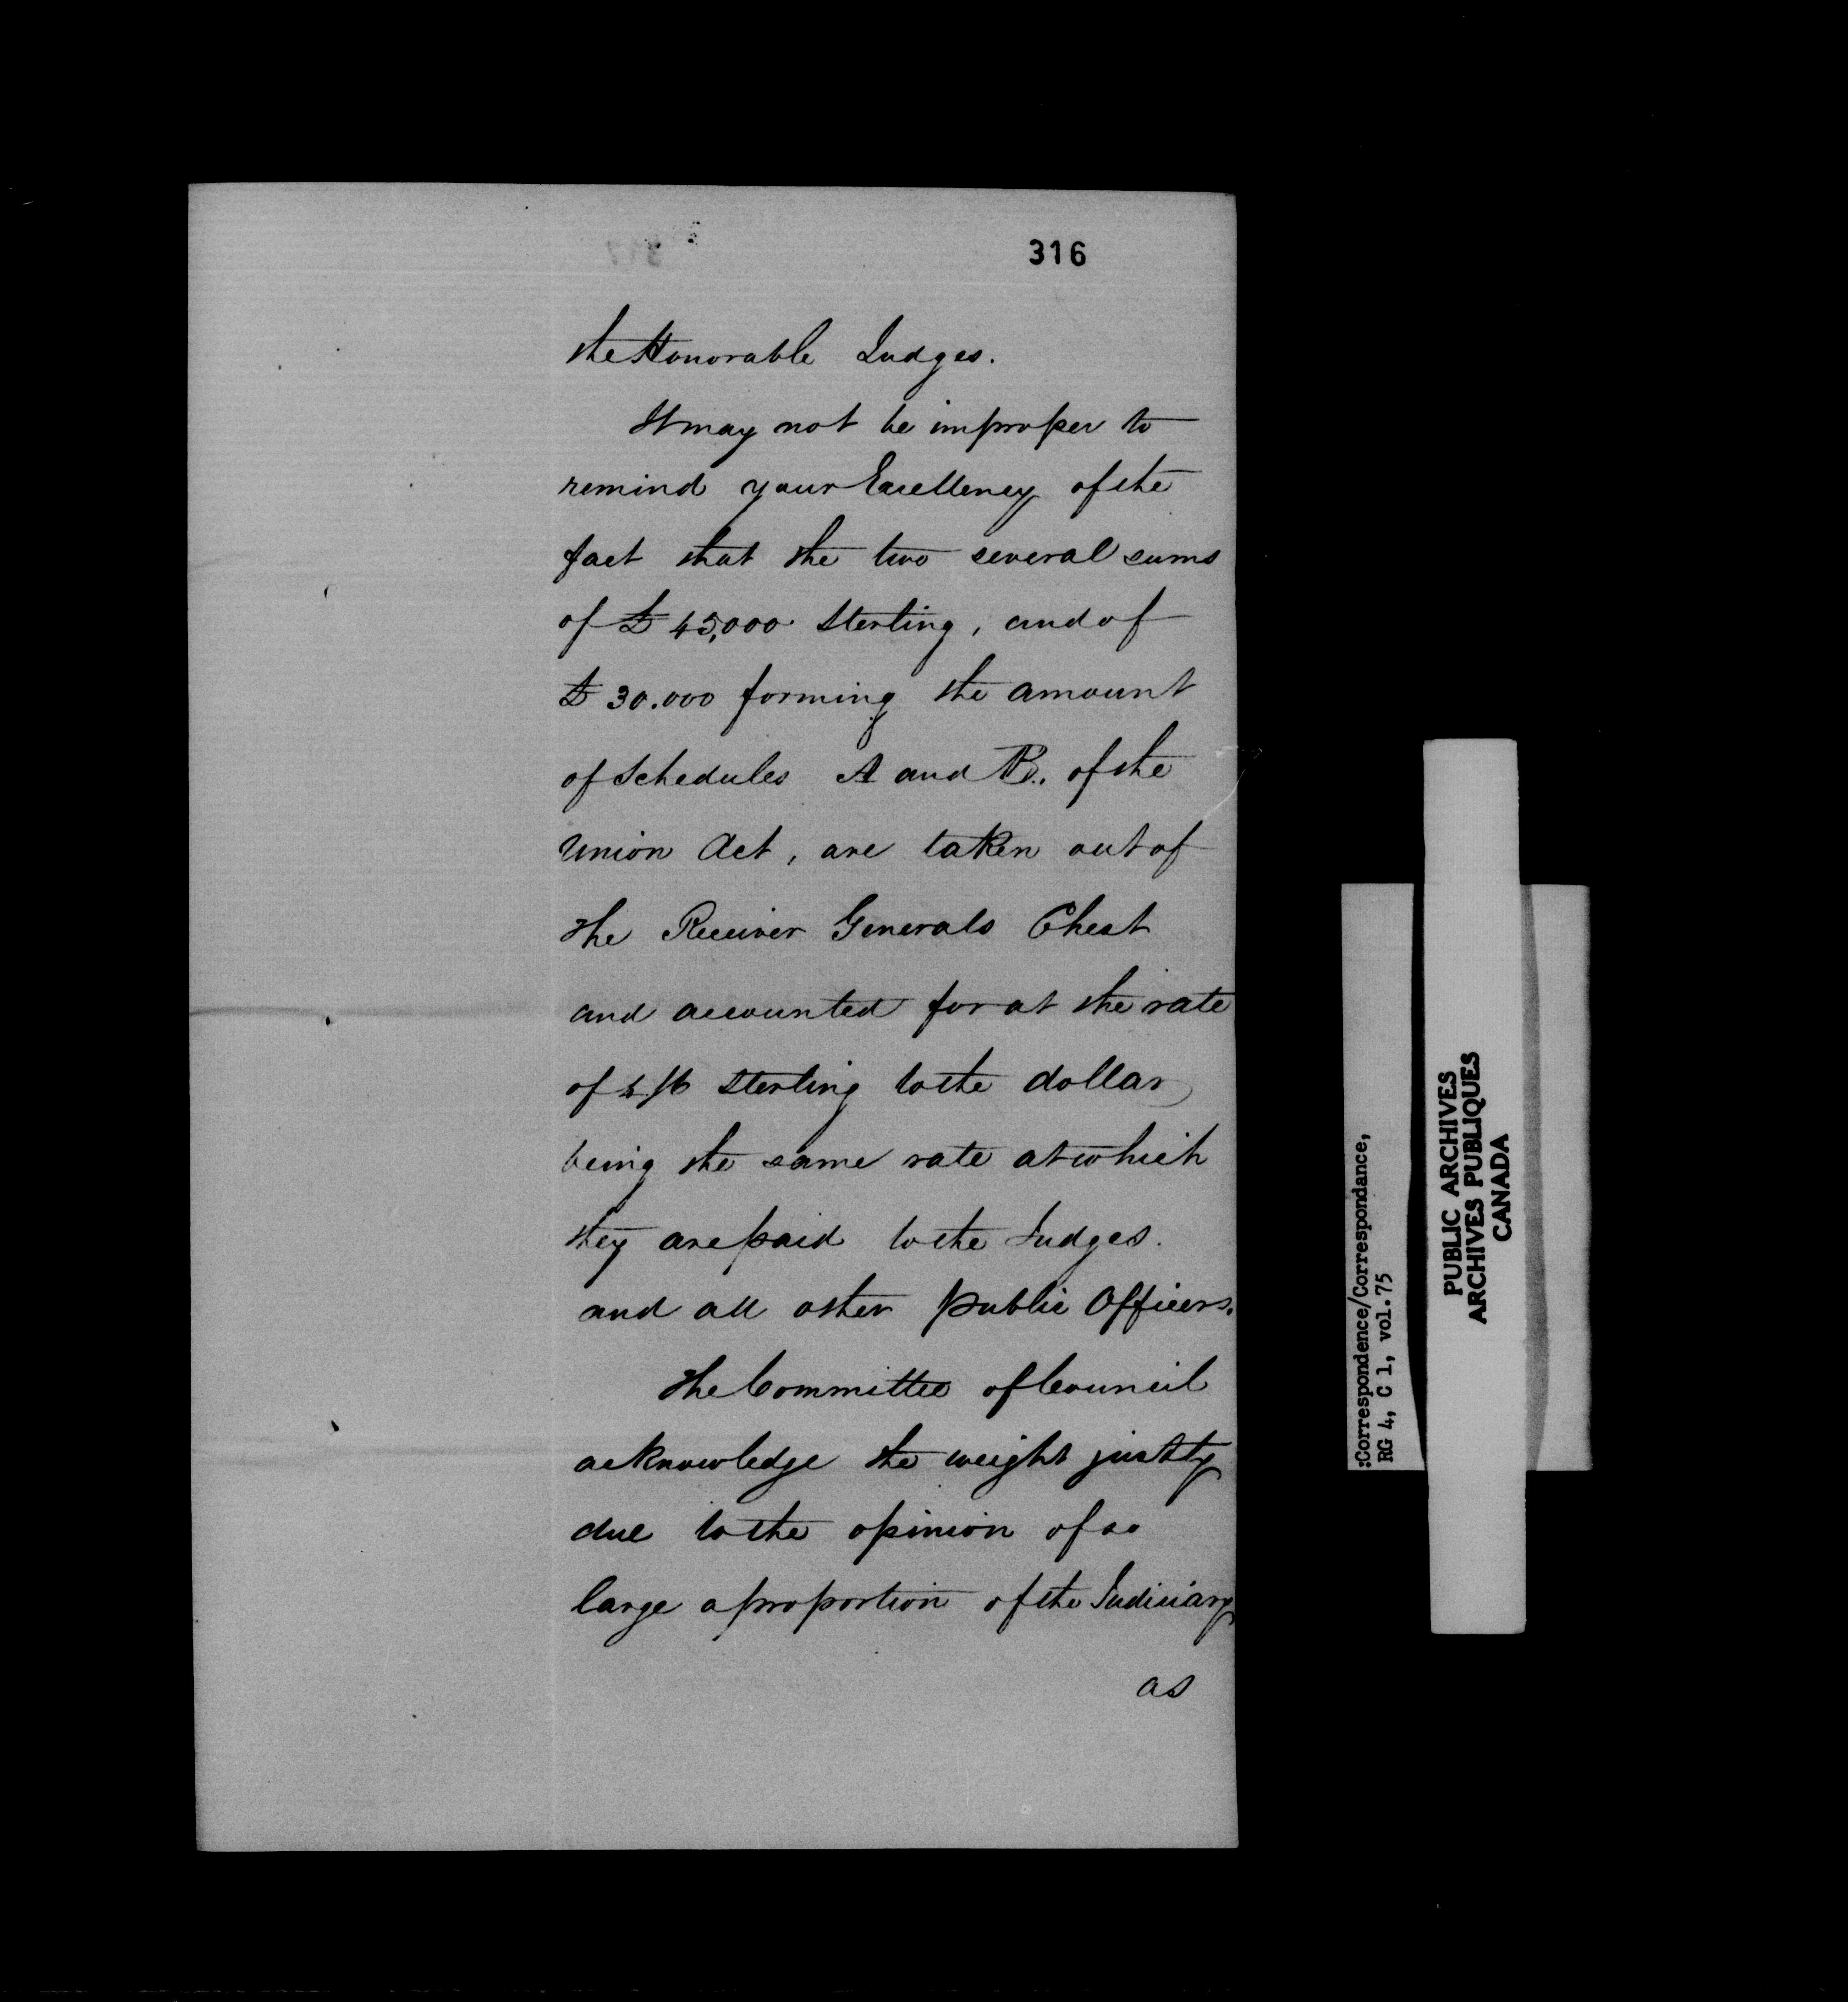 316
the Honorable Judges.
It may not be improper to
remind your Excellency of the
fact that the two several sums
of £ 45,000 Sterling, and of
£ 30.000 forming the amount
of Schedules A and B. of the
Union Act, are taken out of
the Receiver Generals Chest
and accounted for at the rate
of Sterling to the dollar
being the same rate at which
they are paid to the Judges.
and all other public Officers.
The Committee of Council
acknowledge the weight justly
due to the opinion of so
large a proportion of the Judiciary,
as
:Correspondence/Correspondance,
RG 4, C 1, vol.75
PUBLIC ARCHIVES
ARCHIVES PUBLIQUES
CANADA